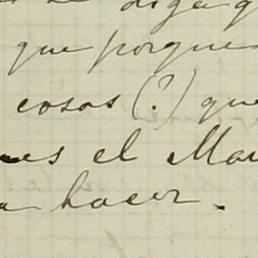 diga q
que porque
cosas (?) que
es el Mar
a hacer.